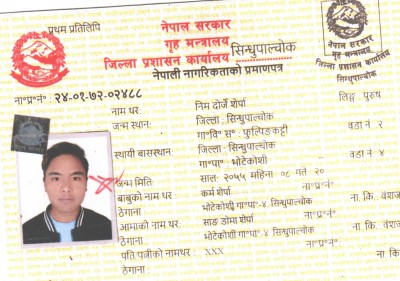 प्रथम प्रतिलिपि
नेपाल सरकार
गृह मन्त्रालय
जिल्ला प्रशासन कार्यालय सिन्धुपाल्चोक
नेपाली नागरिकताको प्रमाणपत्र
नेपाल सरकार
गृह मन्त्रालय
जिल्ला प्रशासन कार्यालय
सिन्धुपाल्चोक
ना॰प्र॰नं॰ २४-०१-७२-०२४८८
लिङ्ग: पुरुष
नाम थर: निम दोर्जे शेर्पा
जन्म स्थान: जिल्ला: सिन्धुपाल्चोक
गा॰वि॰स॰: फुल्पिङकट्टी वडा नं २
स्थायी बासस्थान: जिल्ला: सिन्धुपाल्चोक
गा॰पा॰ भोटेकोशी वडा नं ४
जन्म मिति साल: २०५५ महिना ०८ गते २०
बाबुको नाम थर: कर्म शेर्पा ना॰प्र॰नं॰
ठेगाना: भोटेकोशी गा॰पा॰-४ सिन्धुपाल्चोक ना. कि. वंशज
आमाको नाम थर: साङ डोमा शेर्पा ना॰प्र॰नं॰
ठेगाना: भोटेकोशी गा॰पा॰-४ सिन्धुपाल्चोक ना. कि. वंशज
पति पत्नीको नामथर: xxx ना॰प्र॰नं॰
ठेगाना: ना. कि.